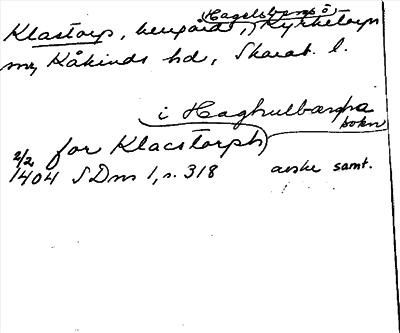 Hagelsbergs ö
Klastorp, herrgård, Kyrketorps
sn, Kåkinds hd, Skarab. l.
i Haghulbærgha
sokn
for Klacstorph
2/2
1404 SDns 1, s. 318 avskr samt.